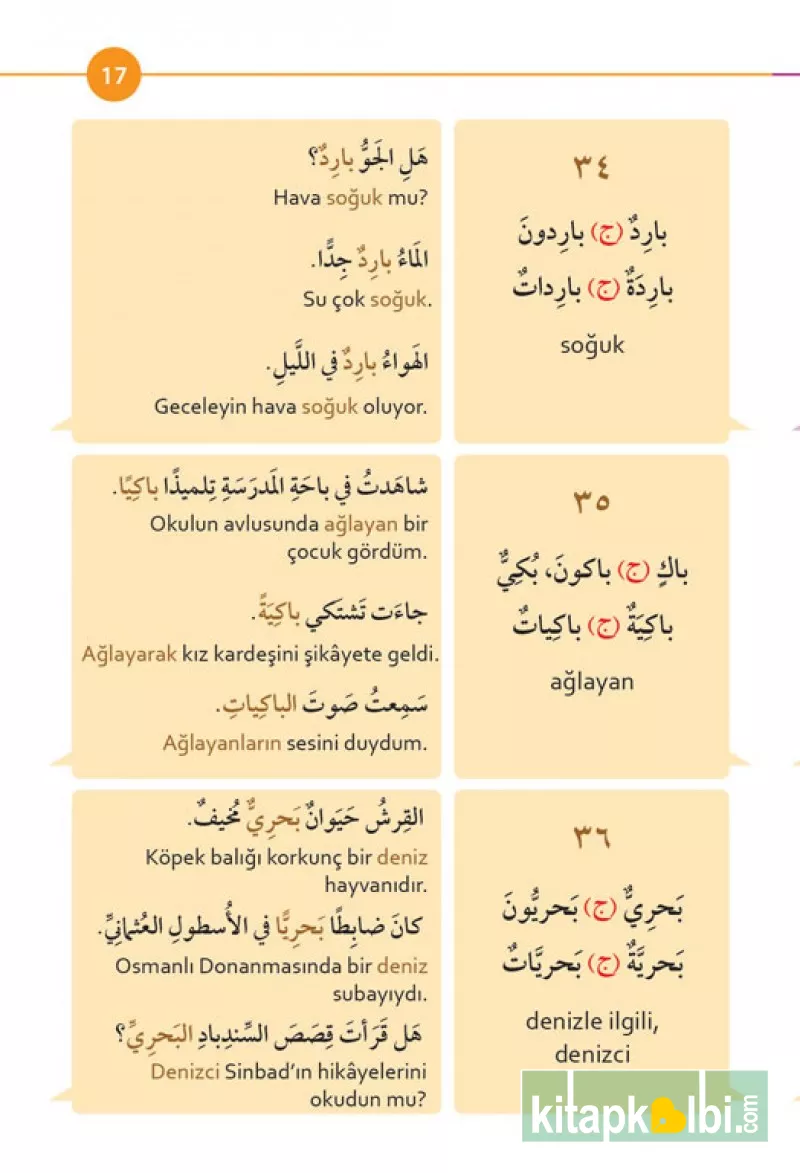 17
٣٤
بارِدٌ (ج) بارِدونَ
بارِدَةٌ (ج) بارِداتٌ
soğuk
هَلِ الجَوُّ بارِدٌ؟
Hava soğuk mu?
الماءُ بارِدٌ جِدًّا.
Su çok soğuk.
الهَواءُ بارِدٌ في اللَّيلِ.
Geceleyin hava soğuk oluyor.
٣٥
باكٍ (ج) باكونَ، بُكِيٌّ
باكِيَةٌ (ج) باكِياتٌ
ağlayan
شاهَدتُ في باحَةِ المَدرَسَةِ تِلميذًا باكِيًا.
Okulun avlusunda ağlayan bir
çocuk gördüm.
جاءَت تَشتَكي باكِيَةً.
Ağlayarak kız kardeşini şikâyete geldi.
سَمِعتُ صَوتَ الباكِياتِ.
Ağlayanların sesini duydum.
٣٦
بَحرِيٌّ (ج) بَحريُّونَ
بَحريَّةٌ (ج) بَحريَّاتٌ
denizle ilgili,
denizci
القِرشُ حَيَوانٌ بَحرِيٌّ مُخيفٌ.
Köpek balığı korkunç bir deniz
hayvanıdır.
كانَ ضابِطًا بَحرِيًّا في الأُسطولِ العُثمانِيِّ.
Osmanlı Donanmasında bir deniz
subayıydı.
هَل قَرَأتَ قِصَصَ السِّندِبادِ البَحرِيِّ؟
Denizci Sinbad’ın hikâyelerini
okudun mu?
kitapkalbi.com